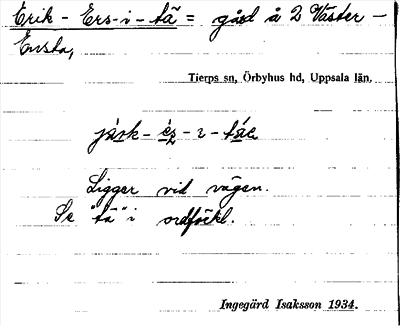 Erik - Ers- i - tä = gård å 2 Väster -
Ensta,
Tierps sn, Örbyhus hd, Uppsala län.
Ligger vid vägen.
Se "tä" i ordförkl.
Ingegärd Isaksson 1934.